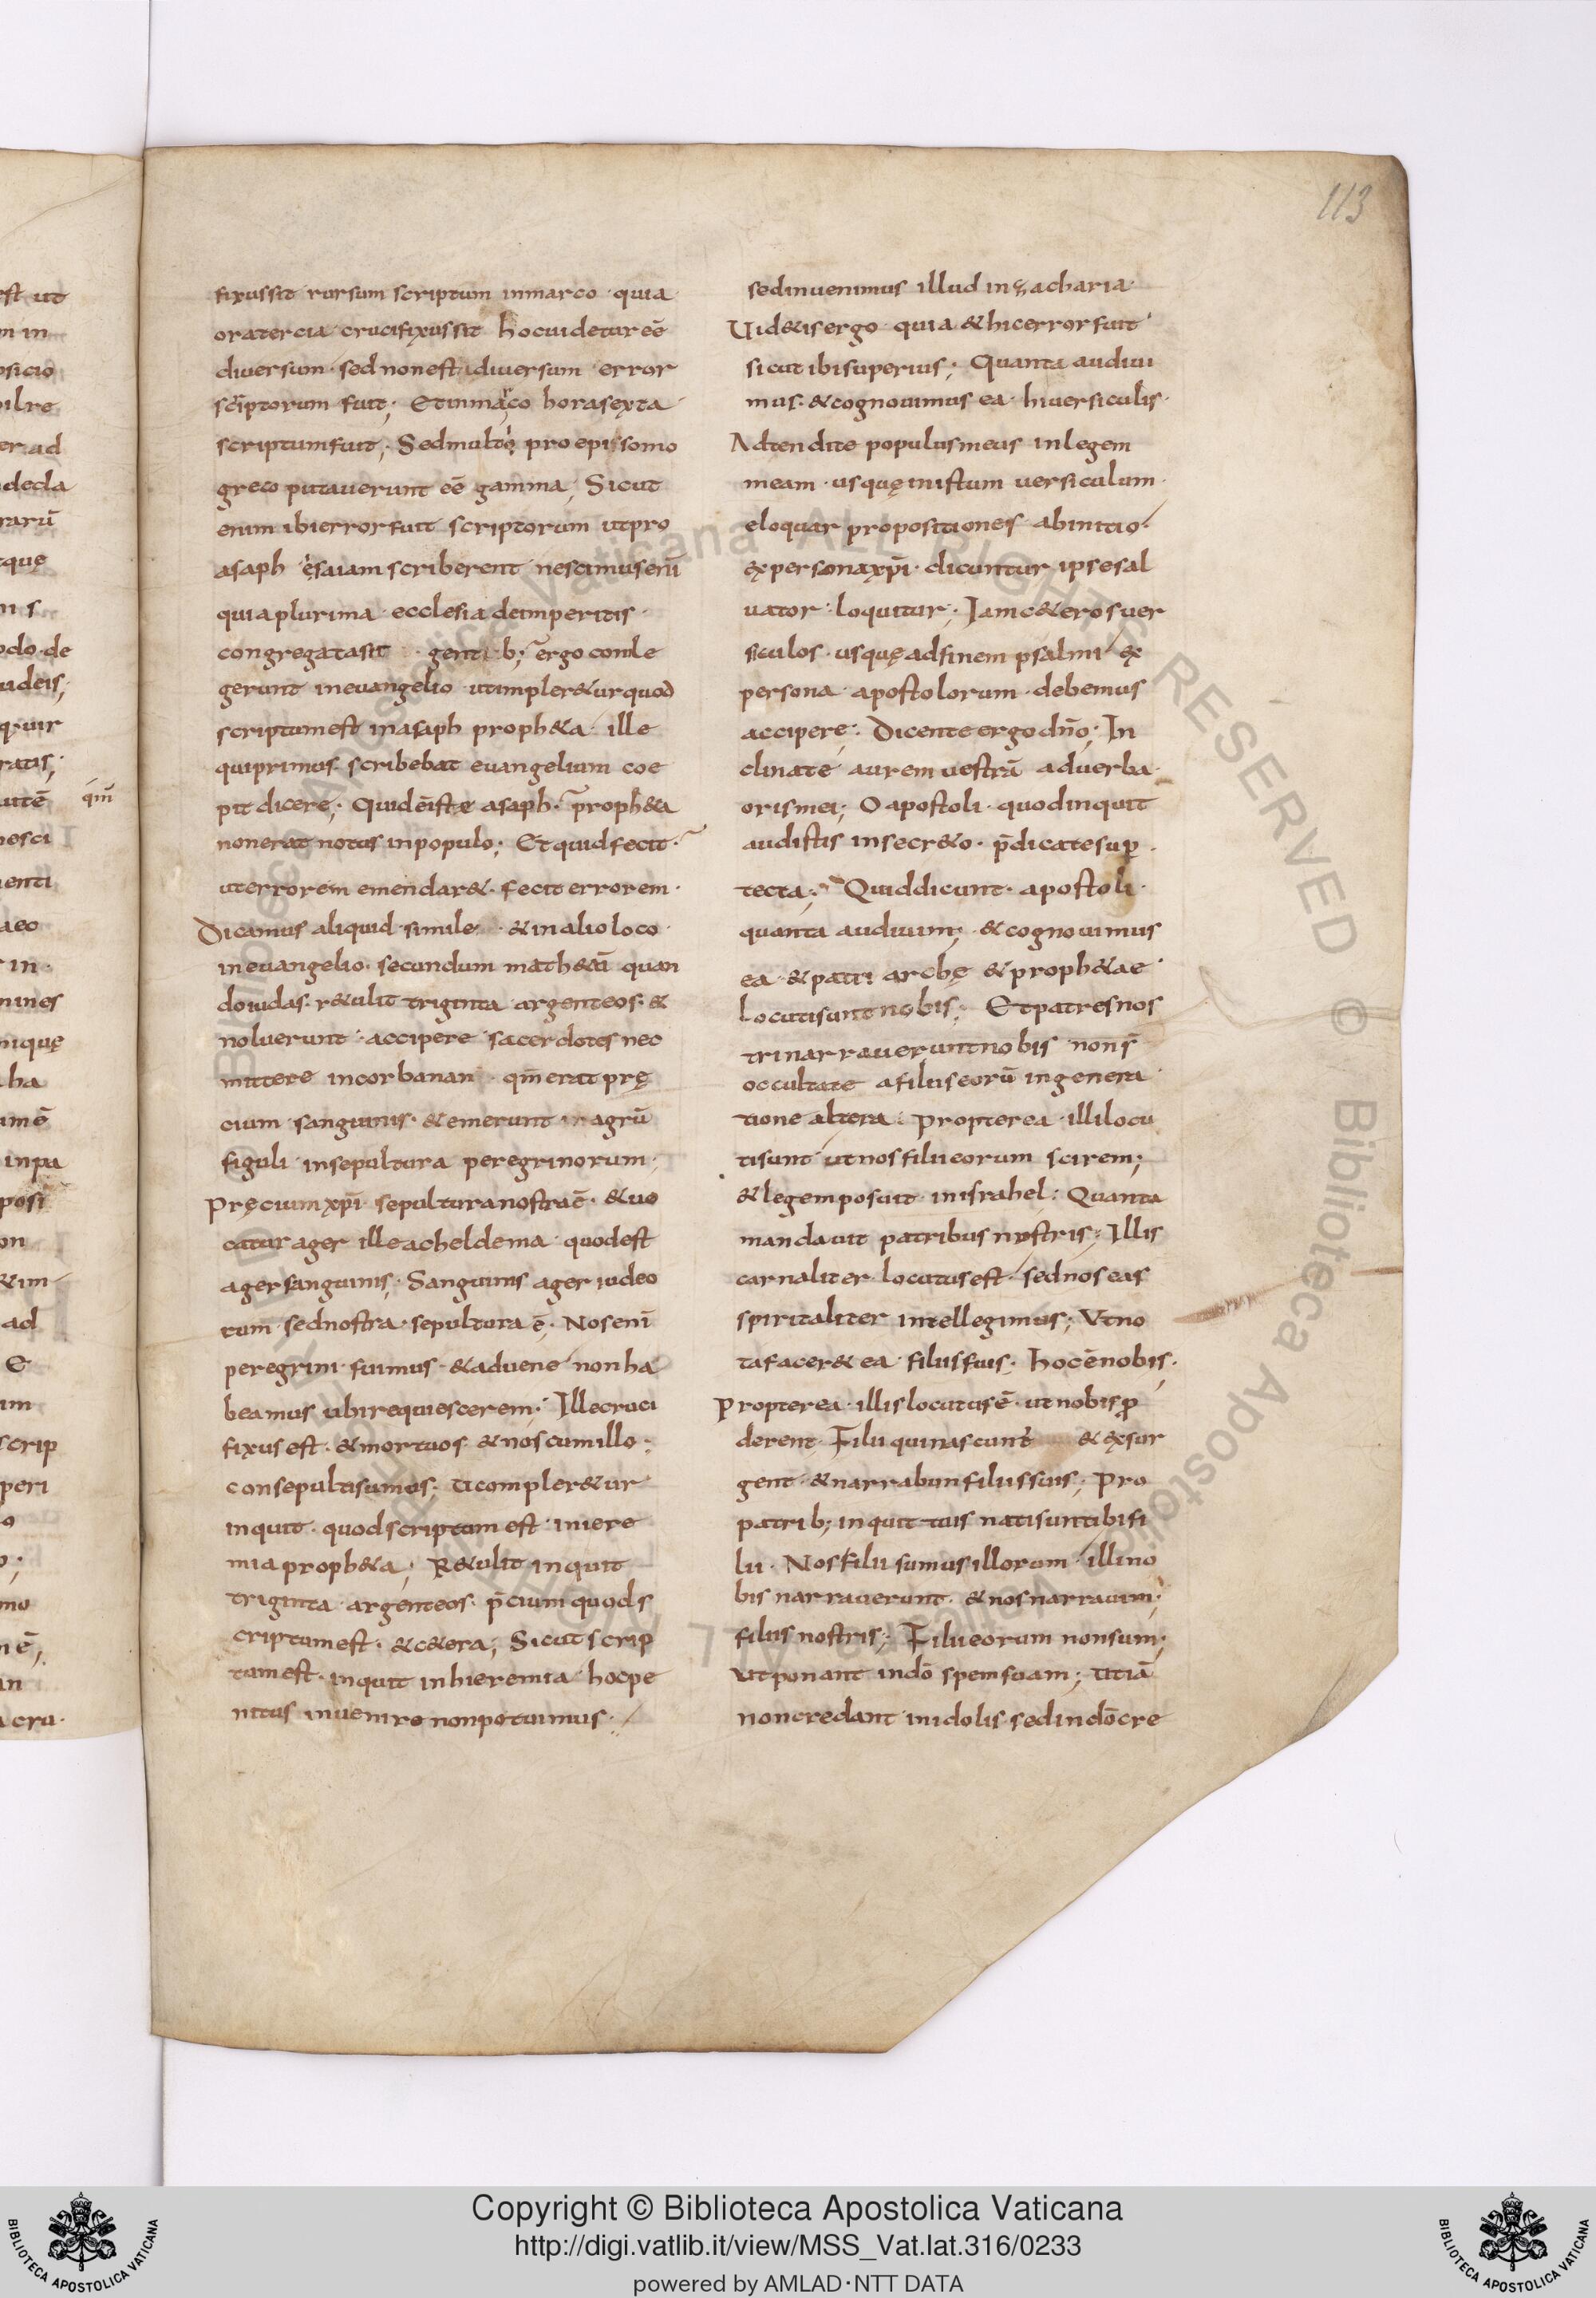 113
fixussit · rursum scriptum inmarco · quia ·
oratercia · crucifixussit hocuidetur eē
diuersum · sed nonest diuersum error
scriptorum fuit; Etinmarco horasexta
scriptumfuit; Sedmulti pro epissomo
greco putauerunt eē gamma; Sicut
enim ibierrorfuit scriptorum utpro
asaph esaiam scriberent nescimusenī
quiaplurima · ecclesia deimperitis ·
congregatasit · gentib; ergo conle
gerunt ineuangelio utimpler&urquod
scriptumest inasaph proph&a · ille
quiprimus · scribebat euangelium coe
pit dicere; Quidēiste asaph · proph&a
nonerat notus inpopulo; Etquidfecit ·
uterrorem emendar& · fecit errorem ·
Dicamus aliquid simile · &inalioloco ·
ineuangelio · secundum math&ū quan
doiudas · r&ulit triginta argenteos · &
noluerunt · accipere sacerdotes nec
mittere incorbanan · qm̄erat prę
cium sanguinis · &emerunt agrū
figuli insepultura peregrinorum ·
Pręciumxp̄i · sepulturanostraē · &uo
catur ager ille acheldema · quodest
agersanguinis; Sanguinis ager iudeo
rum sednostra · sepultura ē; Nosenī
peregrini · fuimus · &aduene nonha
beamus ubirequiescerem; Illecruci
fixus est · &mortuos · &noscumillo ·
consepultisumus; Utcompler&ur
inquit · quodscriptum est · iniere
mia proph&a; R&ulit inquit
triginta argenteos · p̄cium quods
criptumest · &c&era; Sicutscrip
tumest · inquit inhieremia hocpe
nitus inuenire nonpotuimus ·
sedinuenimus illud inzacharia ·
Uid&isergo quia &hicerrorfuit
sicut ibisuperius; Quanta audiui
mus · &cognouimus ea · hiuersiculis ·
Adtendite populusmeus inlegem
meam · usquęinistum uersiculum ·
eloquar propositiones abinitio ·
expersonaxp̄i · dicuntur ipsesal
uator · loquitur; Iamc&erosuer
siculos · usquęadfinem psalmi ex
persona apostolorum · debemus
accipere; Dicente ergo dn̄o; In
clinate aurem uestrā aduerba ·
orismei; O apostoli · quodinquit
audistis insecr&o · p̄dicatesup̄ ·
tecta; Quiddicunt · apostoli ·
quanta audiuim; · &cognouimus
ea · &patriarchę &proph&ae
locutisunt nobis; Etpatresnos
trinarrauerunt nobis nons̄
occultate afiliiseorū ingenera
tione altera · propterea · illilocu
tisunt utnosfiliieorum scirem;
&legemposuit · inisrahel: Quanta
mandauit patribus nostris; Illis
carnaliter · locutusest · sednoseas
spiritaliter intellegimus; Utno
tafacer& ea filiisfuis · hocēnobis;
Propterea · illislocutusē · utnobisp̄
derent · Filii quinascunt &exsur
gent · &narrabunfiliissuis; Pro
patrib; inquit tuis natisuntibifi
lii · Nosfilii sumusillorum · illino
bis narrauerunt · &nosnarrauim;
filiis nostris; Filiieorum nonsum;
Utponant indō spemsuam; utiā
noncredant inidolis · sedindōcre
qm̄
Copyright © Biblioteca Apostolica Vaticana
http://digi.vatlib.it/view/MSS_Vat.lat.316/0233
powered by AMLAD·NTT DATA
BIBLIOTECA APOSTOLICA VATICANA
BIBLIOTECA APOSTOLICA VATICANA